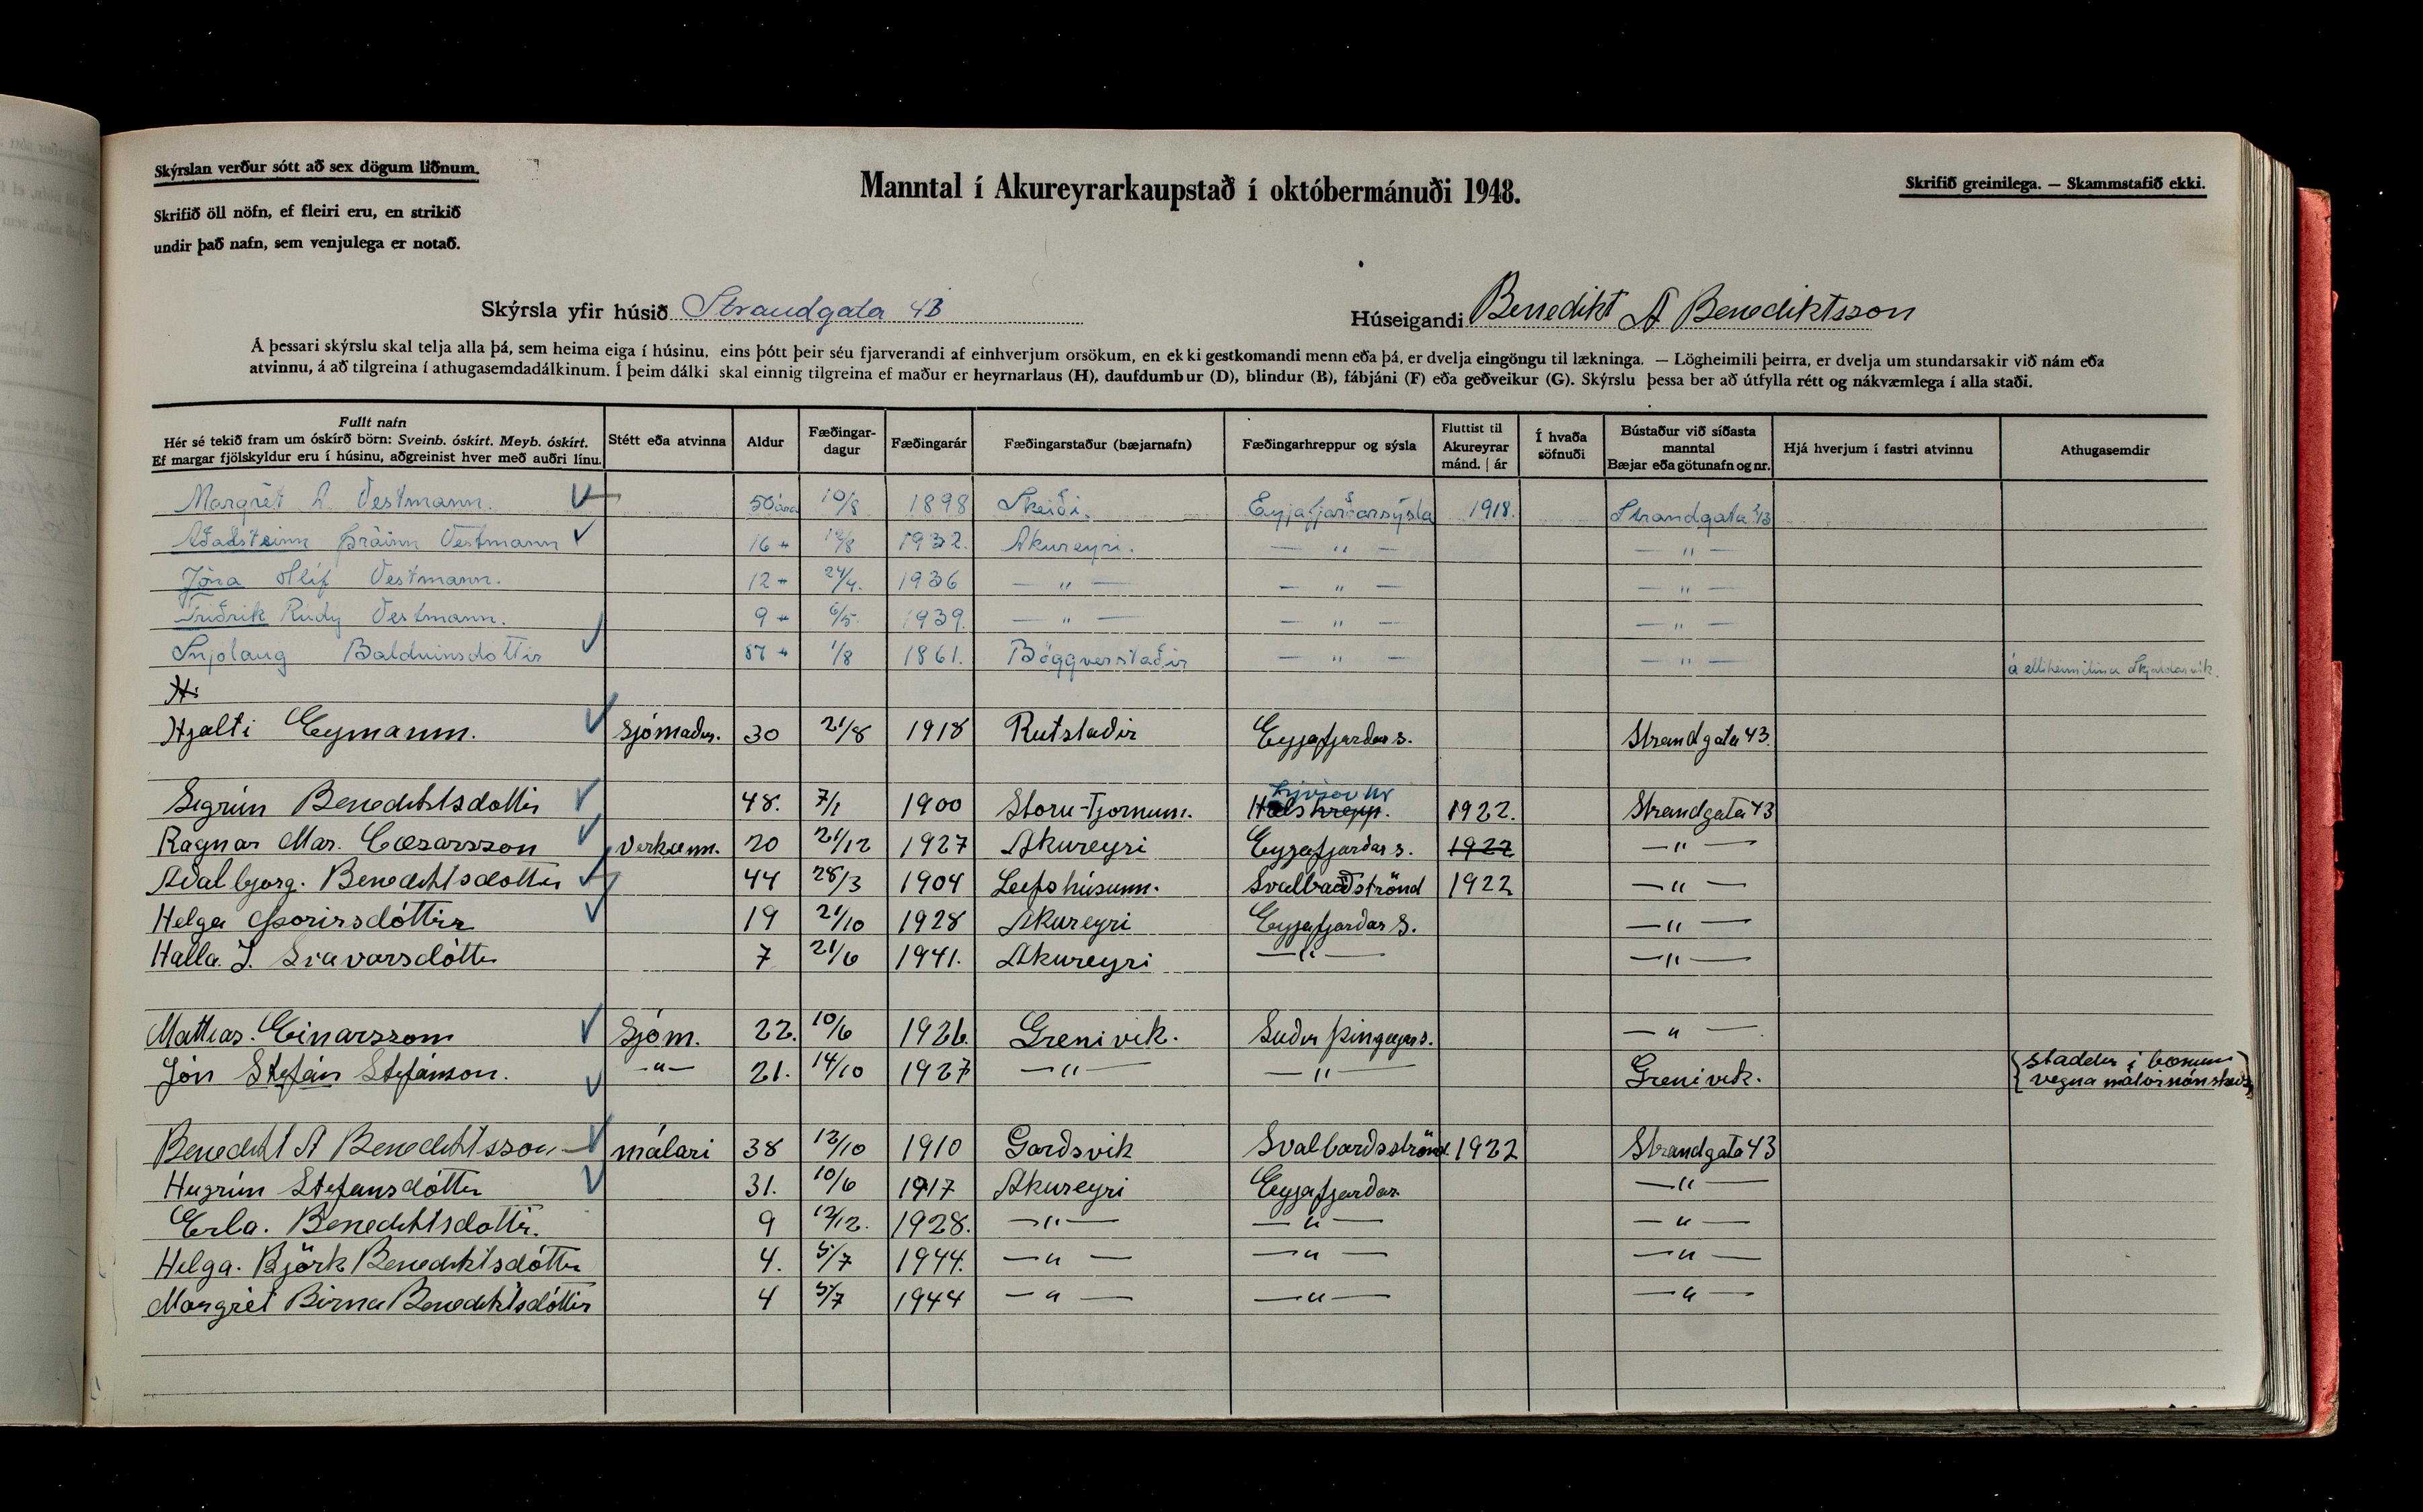 Skýrslan verður sótt að sex dögum liðnum.
Skrifið öll nöfn, ef fleiri eru, en strikið
undir það nafn, sem venjulega er notað.
Manntal í Akureyrarkaupstað í októbermánuði 1948.
Skrifið greinilega. — Skammstafið ekki.
Skýrsla yfir húsið Strandgata 43
Húseigandi Benedikt A Benediktsson
Á þessari skýrslu skal telja alla þá, sem heima eiga í húsinu, eins þótt þeir séu fjarverandi af einhverjum orsökum, en ekki gestkomandi menn eða þá, er dvelja eingöngu til lækninga. — Lögheimili þeirra, er dvelja um stundarsakir við nám eða
atvinnu, á að tilgreina í athugasemdadálkinum. Í þeim dálki skal einnig tilgreina ef maður er heyrnarlaus (H), daufdumbur (D), blindur (B), fábjáni (F) eða geðveikur (G). Skýrslu þessa ber að útfylla rétt og nákvæmlega í alla staði.
Fullt nafn Hér sé tekið fram um óskírð börn: Sveinb. óskírt. Meyb. óskírt. Ef margar fjölskyldur eru í húsinu, aðgreinist hver með auðri línu. Stétt eða atvinna Aldur Fæðingar-dagur Fæðingarár Fæðingarstaður (bæjarnafn) Fæðingarhreppur og sýsla Fluttist til Akureyrar mánd. | ár Í hvaða söfnuði Bústaður við síðasta manntal Bæjar eða götunafn og nr. Hjá hverjum í fastri atvinnu Athugasemdir
Margrét A. Vestmann. 50 ára 10/8 1898 Skeiði. Eyjafjarðarsýsla 1918. Strandgata 43
Aðalsteinn Þráinn Vestmann 16 " 12/8 1932. Akureyri. — " — — " —
Jóna Hlíf Vestmann. 12 " 24/4. 1936 — " — — " — — " —
Friðrik Rudy Vestmann. 9 " 6/5. 1939. — " — — " — — " —
Snjolaug Balduinsdottir 87 " 1/8 1861. Böggverstaðir — " — — " — á elliheimilinu Skjaldarvík.
Hj
Hjalti Eymann. sjómaður. 30 21/8 1918 Rutstaðir Eyjafjarðar s. Strandgata 43.
Ljósav hr
Sigrún Benediktsdottir 48. 7/1 1900 Storu-Tjornum. Hálshrepp. 1922. Strandgata 43
Ragnar Mar. Cæsarsson verkam. 20 21/12 1927 Akureyri Eyjafjarðar s. 1922 — " —
Aðalbjorg. Benediktsdottir 44 28/3 1904 Leifshúsum. Svalbarðströnd 1922 — " —
Helga Þorirsdóttir 19 21/10 1928 Akureyri Eyjafjarðar s. — " —
Halla. J. Svavarsdóttir 7 21/6 1941. Akureyri — " — — " —
Mattias. Einarsson Sjóm. 22. 10/6 1926. Grenivik. Suður Þingeyjars. — " —
Jón Stefán Stefánson. — " — 21. 14/10 1927 — " — — " — Grenivik. staddur í bænum
vegna mótornámskeiðs
Benedikt A Benediktsson málari 38 12/10 1910 Garðsvik Svalbarðsströnd. 1922 Strandgata 43
Hugrún Stefansdóttir 31. 10/6 1917 Akureyri Eyjafjarðar — " —
Erla. Benediktsdottir. 9 12/12. 1928. — " — — " — — " —
Helga. Björk Benediktsdóttir 4. 5/7 1944. — " — — " — — " —
Margrét Birna Benediktsdóttir 4 5/7 1944 — " — — " — — " —